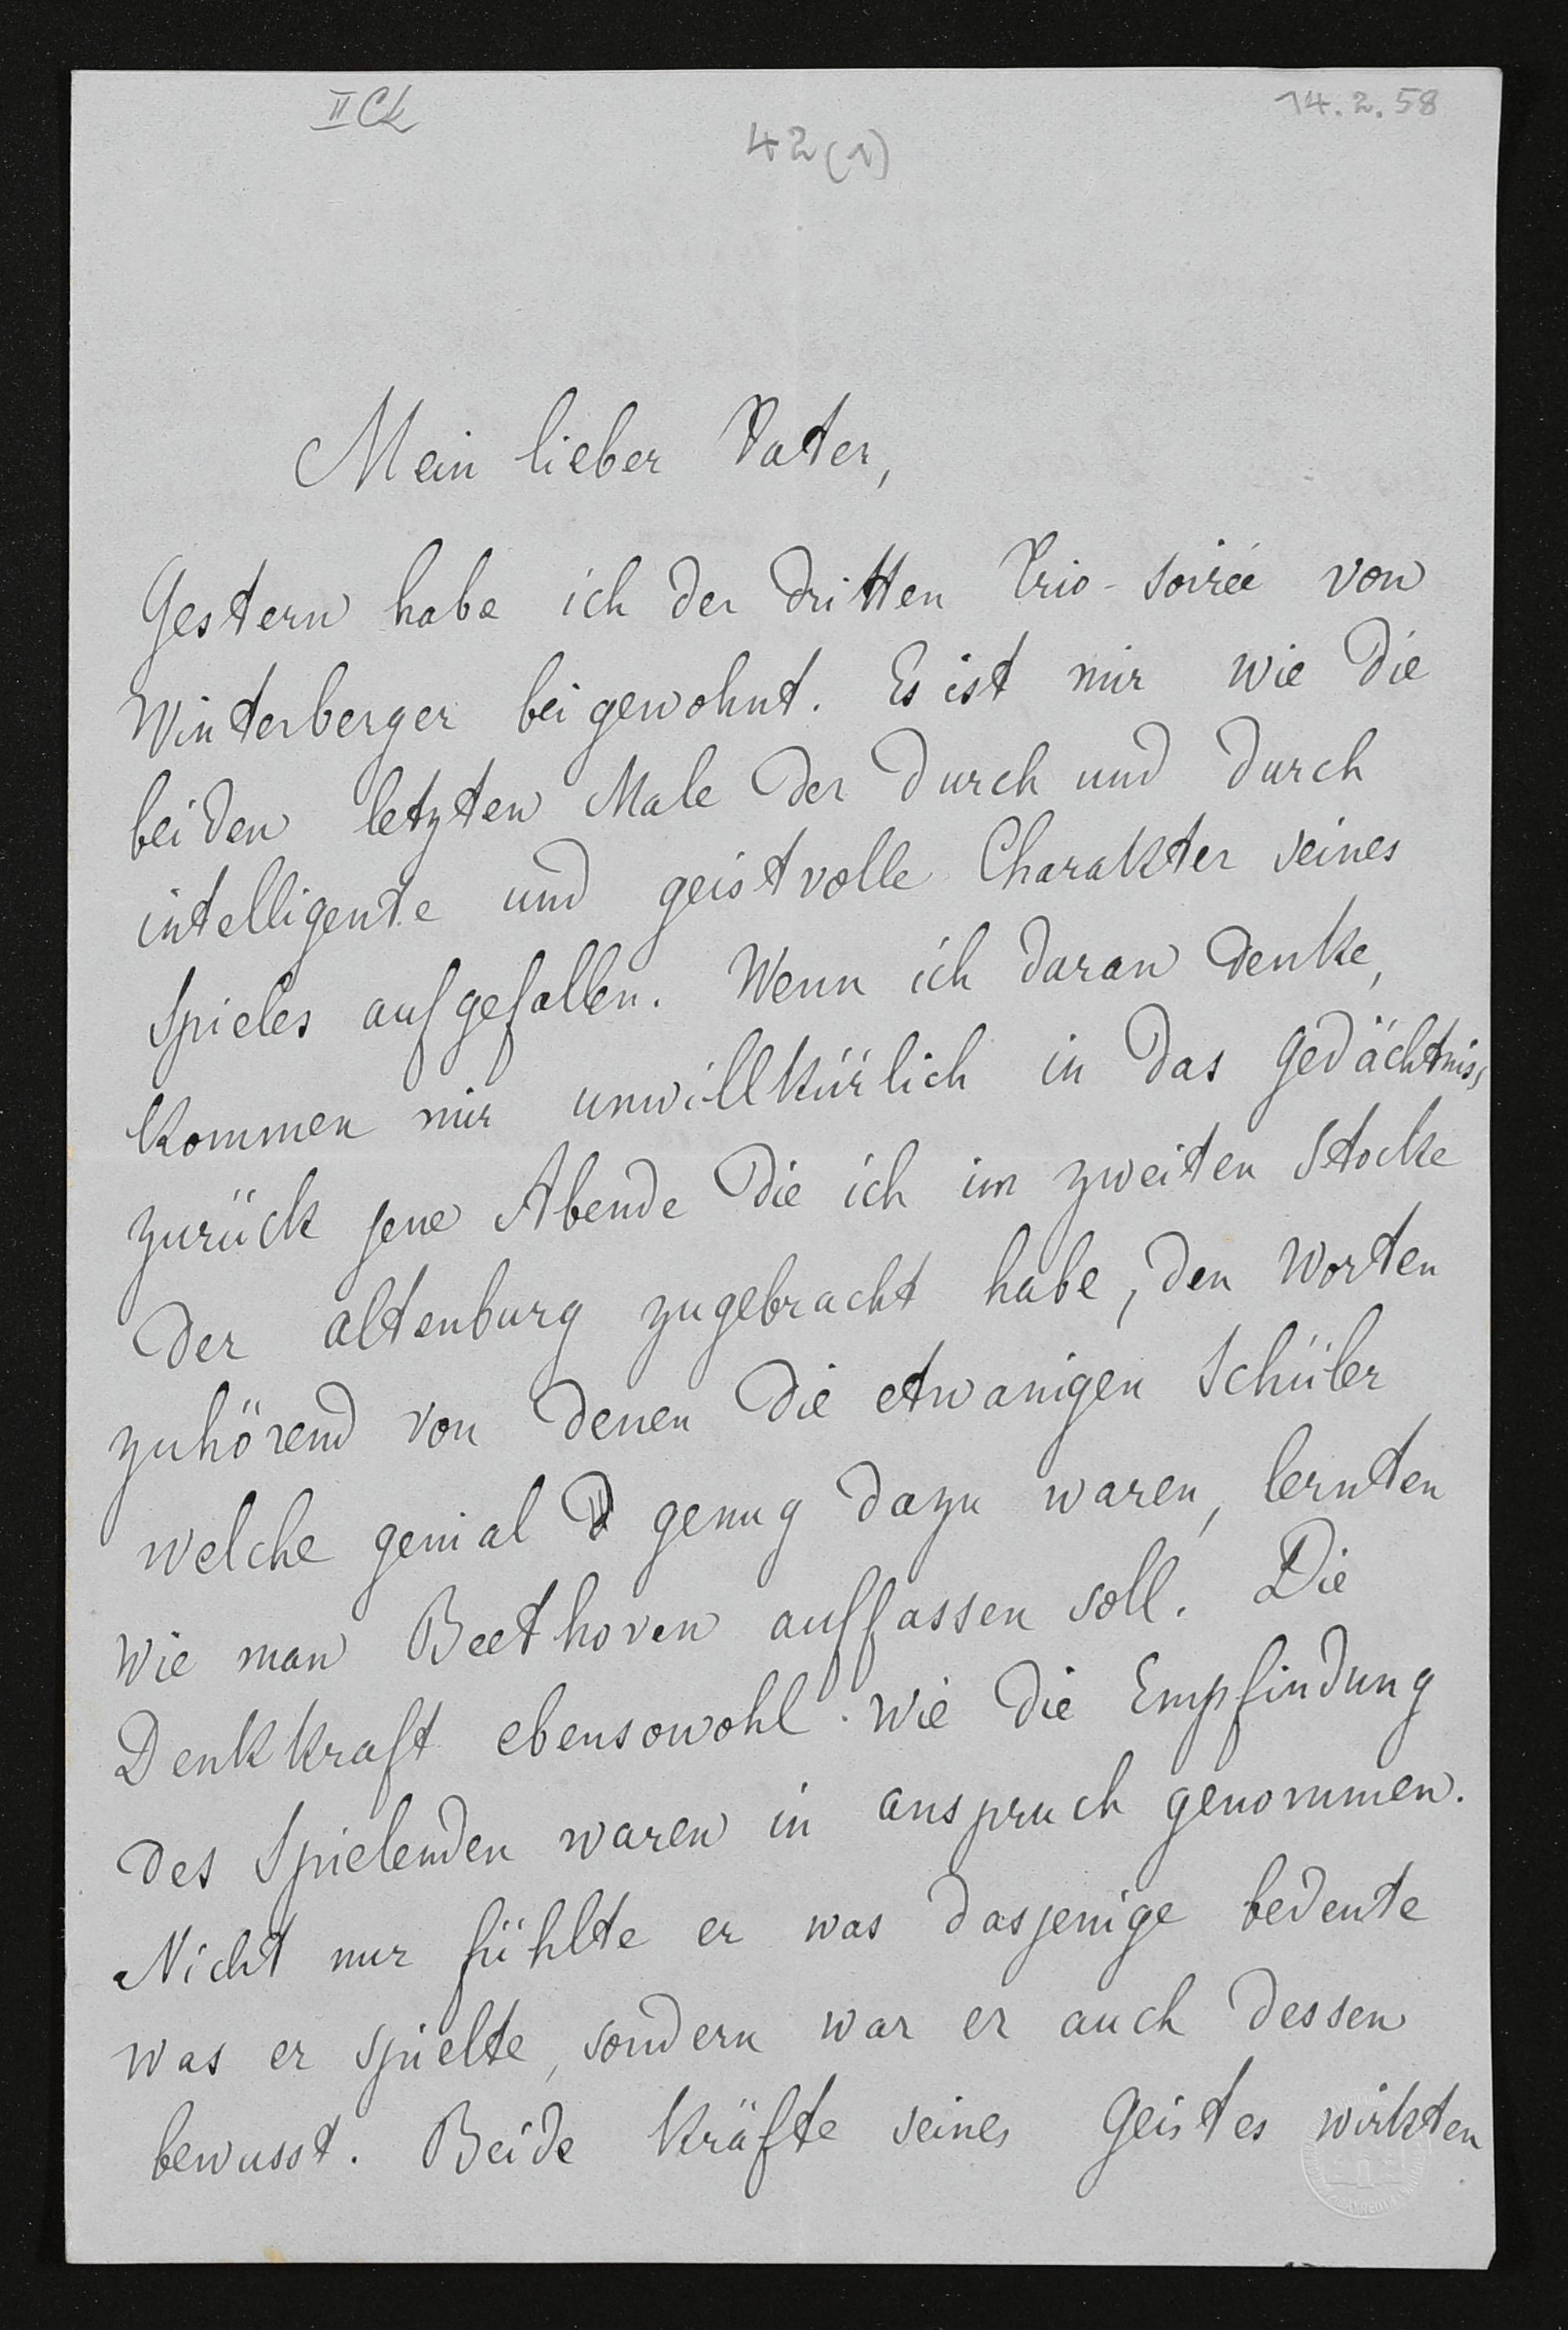 II Ck
14.2.58
42(1)
Mein lieber Vater,
Gestern habe ich der dritten Trio-soirée von
Winterberger beigewohnt. Es ist mir wie die
beiden letzten Male der durch und durch
intelligente und geistvolle Charakter seines
Spieles aufgefallen. Wenn ich daran denke,
kommen mir unwillkürlich in das Gedächtniss
zurück jene Abende die ich im zweiten Stocke
der altenburg zugebracht habe, den Worten
zuhörend von denen die etwanigen Schüler
welche genial genug dazu waren, lernten
wie man Beethoven auffassen soll. Die
Denkkraft ebensowohl wie die Empfindung
des Spielenden waren in anspruch genommen.
Nicht nur fühlte er was dasjenige bedeute
was er spielte, sondern war er auch dessen
bewusst. Beide Kräfte seines Geistes wirkten